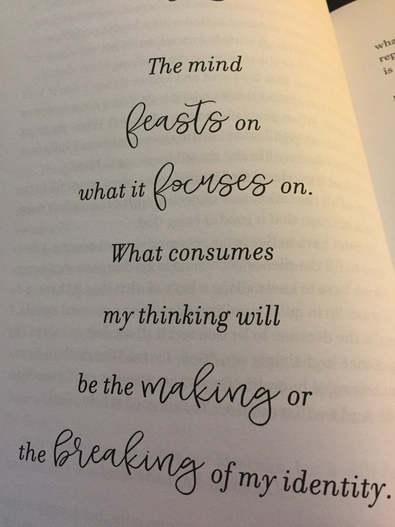 The mind
feasts on
what it focuses on.
What consumes
my thinking will
be the making or
the breaking of my identity.
is